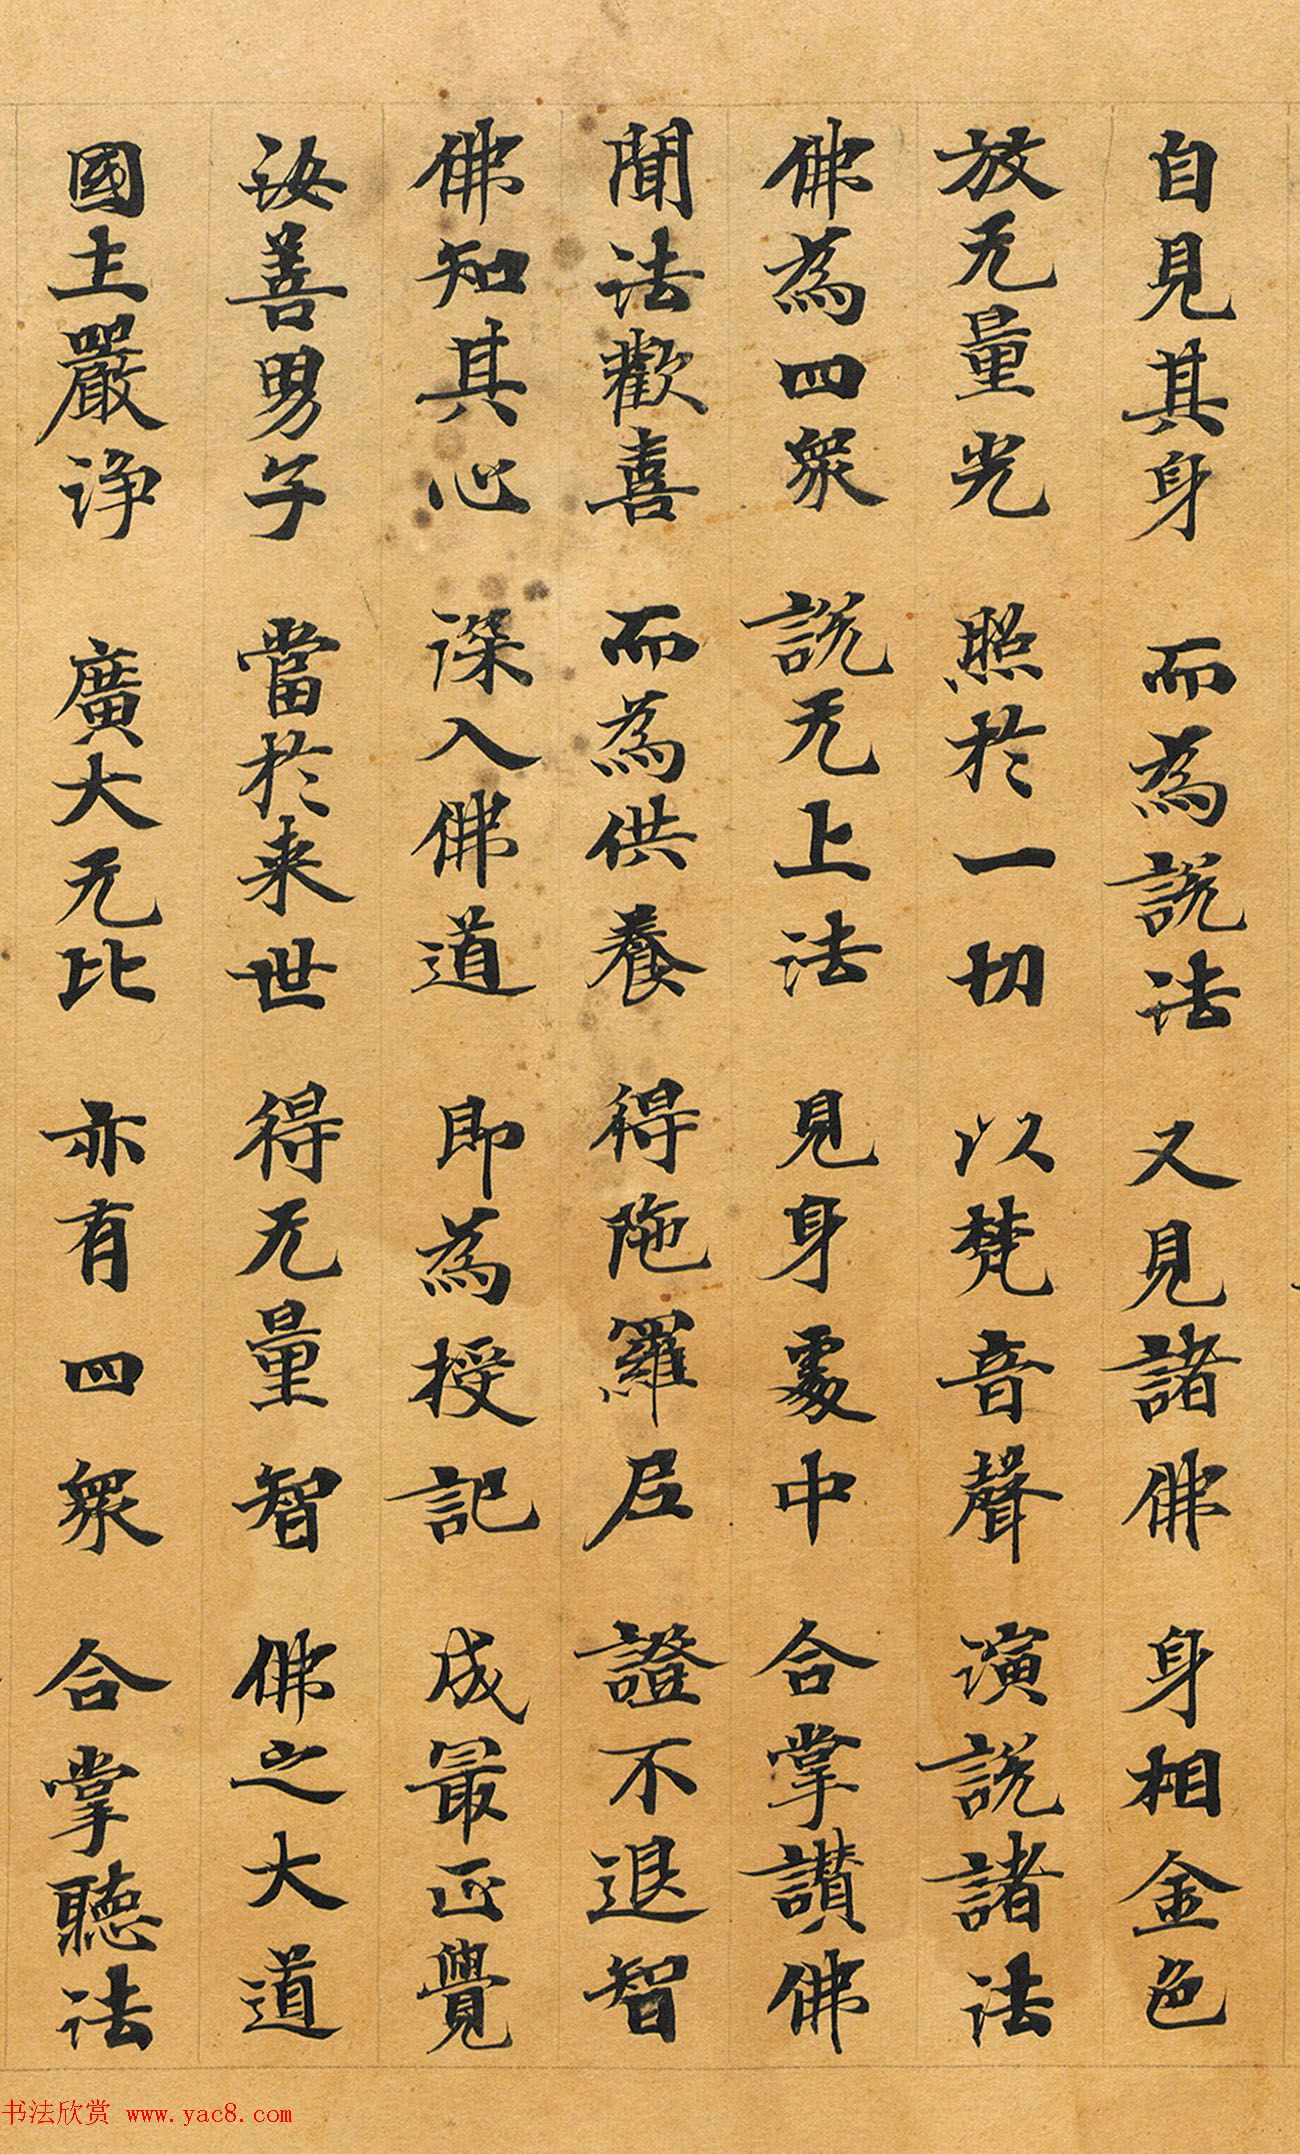 自見其身 而為說法 又見諸佛 身相金色
放无量光 照於一切 以梵音聲 演說諸法
佛為四眾 說无上法 見身處中 合掌讚佛
聞法歡喜 而為供養 得陁羅尼 證不退智
佛知其心 深入佛道 即為授記 成最正覺
汝善男子 當於来世 得无量智 佛之大道
國土嚴淨 廣大无比 亦有四眾 合掌聽法
书法欣赏 www.yac8.com